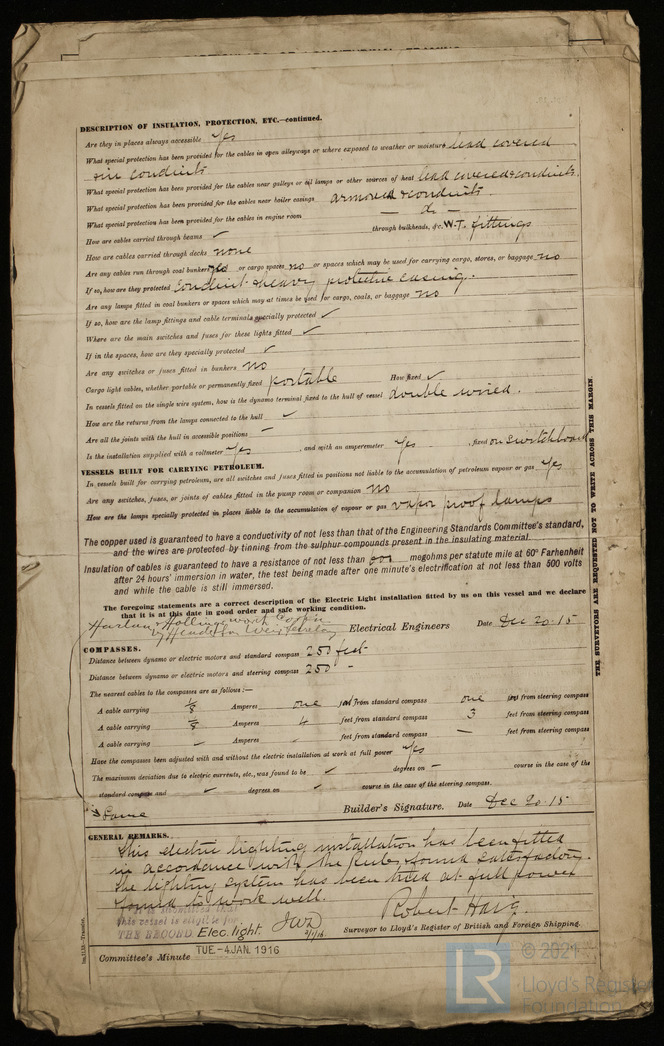 DESCRIPTION OF INSULATION, PROTECTION, ETC.—continued.
Are they in places always accessible Yes
What special protection has been provided for the cables in open alleyways or where exposed to weather or moisture lead covered
in conduits
What special protection has been provided for the cables near galleys or oil lamps or other sources of heat lead covered & conduits.
What special protection has been provided for the cables near boiler casings armored & conduits
What special protection has been provided for the cables in engine room — do —
How are cables carried through beams ✓ through bulkheads, &c. W.T. fittings
How are cables carried through decks none
Are any cables run through coal bunkers or cargo spaces no or spaces which may be used for carrying cargo, stores, or baggage no
If so, how are they protected conduit & heavy protective casing.
Are any lamps fitted in coal bunkers or spaces which may at times be used for cargo, coals, or baggage no
If so, how are the lamp fittings and cable terminals specially protected ✓
Where are the main switches and fuses for these lights fitted ✓
If in the spaces, how are they specially protected ✓
Are any switches or fuses fitted in bunkers no
Cargo light cables, whether portable or permanently fixed portable How fixed ✓
In vessels fitted on the single wire system, how is the dynamo terminal fixed to the hull of vessel double wired.
How are the returns from the lamps connected to the hull ✓
Are all the joints with the hull in accessible positions —
Is the installation supplied with a voltmeter Yes , and with an amperemeter Yes , fixed on switchboard
VESSELS BUILT FOR CARRYING PETROLEUM.
In vessels built for carrying petroleum, are all switches and fuses fitted in positions not liable to the accumulation of petroleum vapour or gas Yes
Are any switches, fuses, or joints of cables fitted in the pump room or companion no
How are the lamps specially protected in places liable to the accumulation of vapour or gas vapor proof lamps
The copper used is guaranteed to have a conductivity of not less than that of the Engineering Standards Committee's standard,
and the wires are protected by tinning from the sulphur compounds present in the insulating material.
Insulation of cables is guaranteed to have a resistance of not less than 600 megohms per statute mile at 60° Farhenheit
after 24 hours' immersion in water, the test being made after one minute's electrification at not less than 500 volts
and while the cable is still immersed.
The foregoing statements are a correct description of the Electric Light installation fitted by us on this vessel and we declare
that it is at this date in good order and safe working condition.
Harlan & Hollingsworth Corp'n
by Electrical Engineers Date Dec 20-15
COMPASSES.
Distance between dynamo or electric motors and standard compass 250 feet
Distance between dynamo or electric motors and steering compass 250 -
The nearest cables to the compasses are as follows:—
A cable carrying 1/8 Amperes one feet from standard compass one feet from steering compass
A cable carrying 7/8 Amperes 4 feet from standard compass 3 feet from steering compass
A cable carrying — Amperes — feet from standard compass — feet from steering compass
Have the compasses been adjusted with and without the electric installation at work at full power Yes
The maximum deviation due to electric currents, etc., was found to be ✓ degrees on — course in the case of the
standard compass and ✓ degrees on ✓ course in the case of the steering compass.
Same Builder's Signature. Date Dec 20-15
GENERAL REMARKS.
This electric lighting installation has been fitted
in accordance with the Rules & found satisfactory.
The lighting system has been tried at full power
& found to work well.
It is submitted that
this vessel is eligible for
THE RECORD. Elec. light. JWD 3/1/16. Robert Haig
Surveyor to Lloyd's Register of British and Foreign Shipping.
Committee's Minute TUE - 4 JAN. 1916
THE SURVEYORS ARE REQUESTED NOT TO WRITE ACROSS THIS MARGIN.
LR
© 2021
Lloyd's Register
Foundation